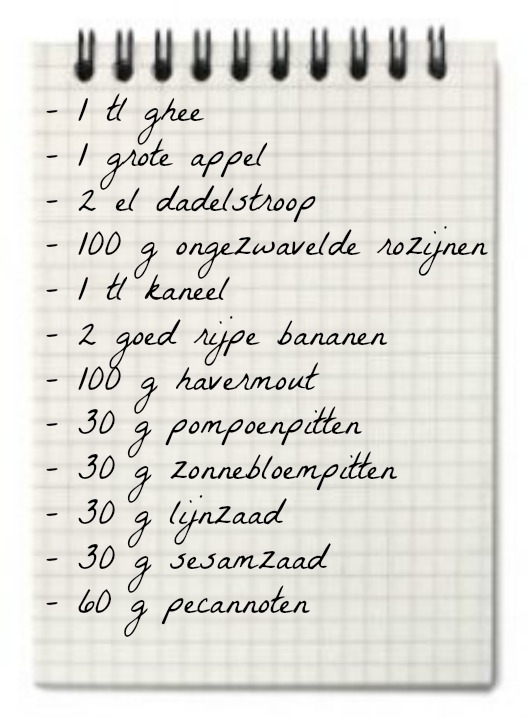 - 1 tl ghee
- 1 grote appel
- 2 el dadelstroop
- 100 g ongezwavelde rozijnen
- 1 tl kaneel
- 2 goed rijpe bananen
- 100 g havermout
- 30 g pompoenpitten
- 30 g zonnebloempitten
- 30 g lijnzaad
- 30 g sesamzaad
- 60 g pecannoten